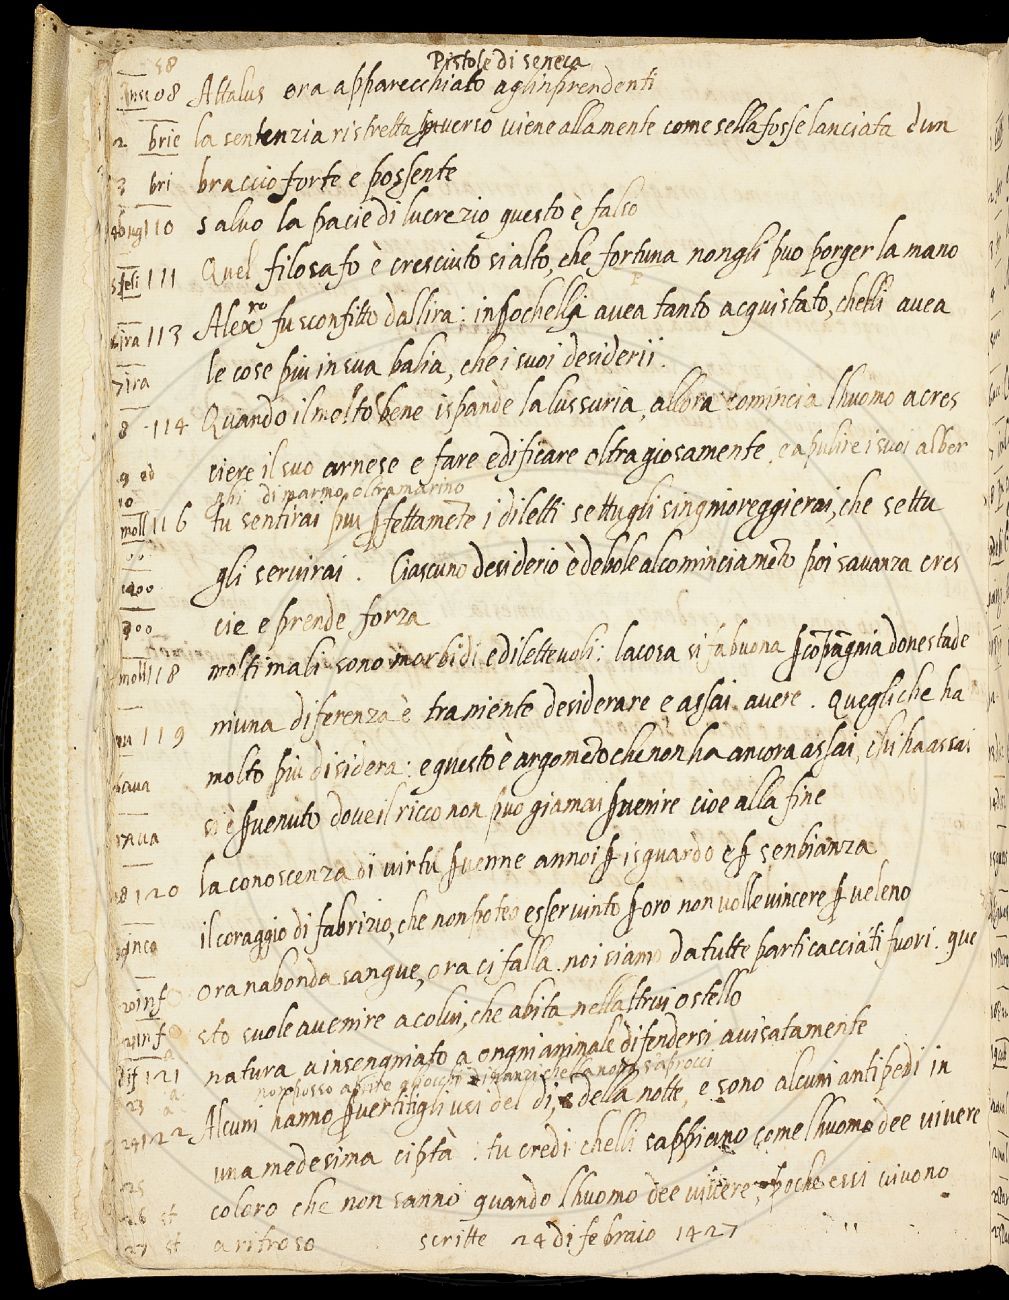 58
Pistole di seneca
108 Attalus era apparecchiato aglinprendenti
2 brie la sentenzia ristretta inverso viene alla mente come sella fosse lanciata dun
3 bri braccio forte e possente
110 salvo la pacie di lucrezio questo è falso
111 Quel filosafo è cresciuto si alto, che fortuna nongli puo porger la mano
ira 113 Alexro fu sconfitto dallira: inpochelli avea tanto acquistato, chelli avea
7 ira le cose piu in sua balia, che i suoi desiderii.
8 114 Quando il molto bene ispande la lussuria, allora comincia lhuomo a cres
9 ciere il suo arnese e fare edificare oltragiosamente e apulire i suoi alber
10 ghi di marmo oltramarino
moll 116 tu sentirai piu pfettamete i diletti settugli singnioreggierai, che settu
gli servirai. Ciascuno desiderio è debole al cominciameto poi savanza cres
cie e prende forza
moll 118 molti mali sono morbidi e dilettevoli: la cosa si fa buona p copagnia donestade
119 niuna diferenza è tra niente desiderare e assai avere. Quegli che ha
molto piu disidera: e questo è argometo che non ha ancora assai, chi ha assai
si è pvenuto dove il ricco non puo giamai pvenire cioe alla fine
18 120 la conoscenza di virtu pvenne annoi p isguardo e p senbianza
il coraggio di fabrizio, che non poteo esser vinto p oro non volle vincere p veleno
20 inf ora nabonda sangue, ora ci falla. noi siamo da tutte parti cacciati fuori. que
21 inf sto suole avenire a colui, che abita nellaltrui ostello
dif 121 natura a insengniato a ongni animale difendersi avisatamente
23 non posso
24 122 Alcuni hanno pvertiti gli usi del di, e della notte, e sono alcuni antipedi in
25 una medesima cipta: tu credi chelli sappiano come lhuomo dee vivere
26 st coloro che non sanno quando lhuomo dee vivere, poche essi vivono
27 st a ritroso scritte 24 di febraio 1427